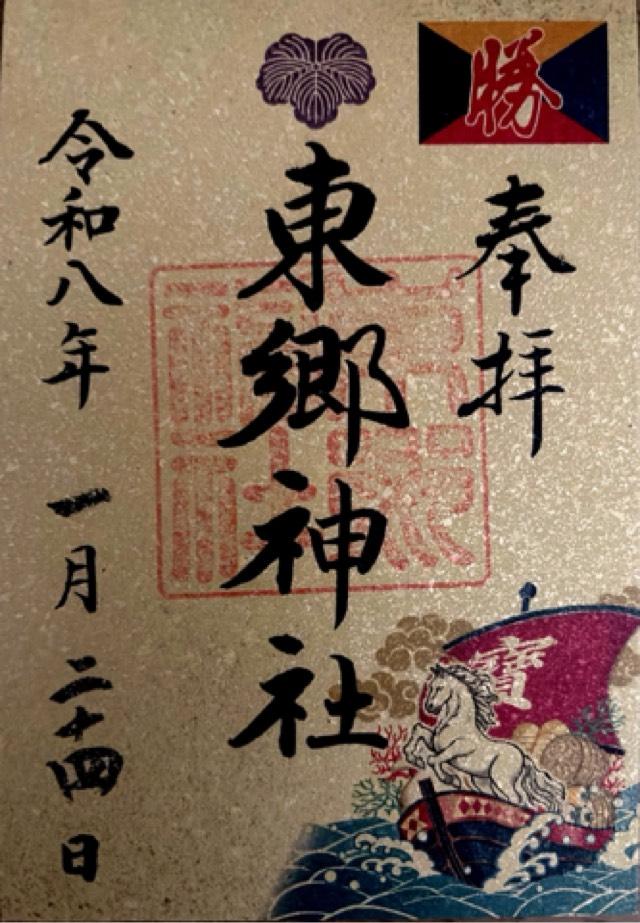 勝
奉拝
東郷神社
令和八年 一月 二十四日
寳